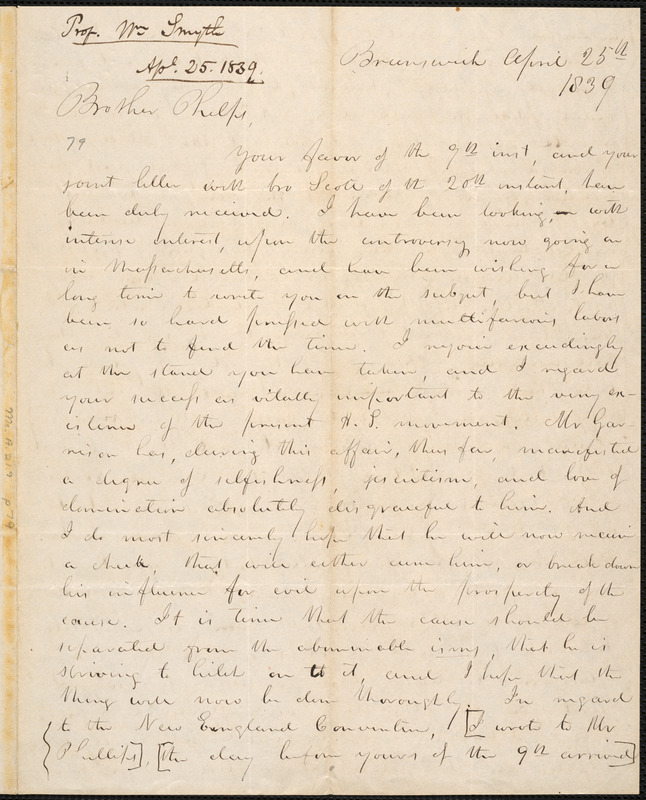 Prof. Wm Smyth
Apl. 25. 1839.
Brunswick April 25th
1839
Brother Phelps,
79
Your favor of the 9th inst, and your
joint letter with bro Scott of the 20th instant, have
been duly received. I have been looking, with
intense interest, upon the controversy now going on
in Massachusetts, and have been wishing for a
long time to write you on the subject, but I have
been so hard pressed with multifarious labors
as not to find the time. I rejoice exceedingly
at the stand you have taken, and I regard
your success as vitally important to the very ex-
istence of the present A. S. movement. Mr Gar-
rison has, during this affair, thus far, manifested
a degree of selfishness, jesuitism, and love of
domination absolutely disgraceful to him. And
I do most sincerely hope that he will now receive
a check, that will either cure him, or break down
his influence for evil upon the prosperity of the
cause. It is time that the cause should be
separated from the abominable isms that he is
striving to on to it, and I hope that the
thing will now be done thoroughly. In regard
to the New England Convention, [I wrote to Mr
Phillips], [the day before yours of the 9th arrived]
Ms. A. 21.9 p 79